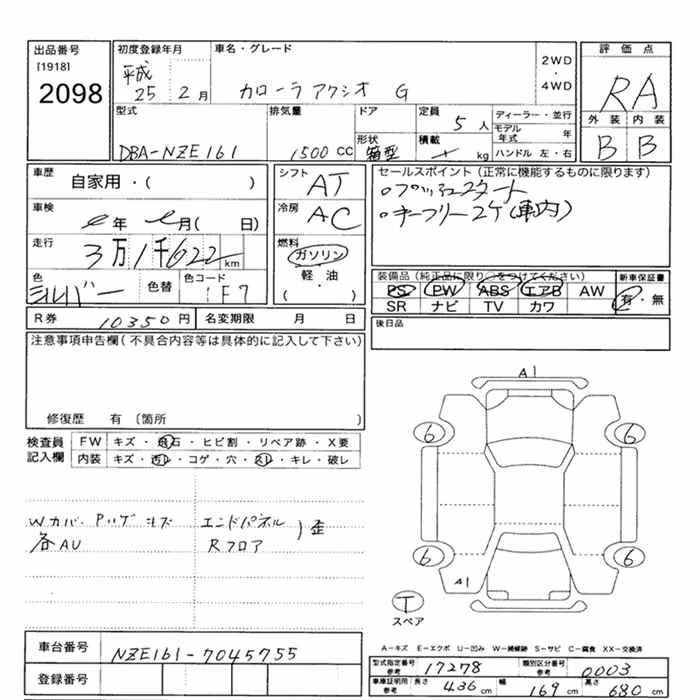 出品番号 初度登録年月 車名・グレード 評価点
[1918] 平成 2WD
2098 25 2月 カローラアクシオ G ・ RA
4WD
型式 排気量 ドア 定員 ディーラー・並行 外装 内装
5人 モデル年式 年
DBA-NZE161 1500CC 形状 箱型 積載 kg ハンドル 左・右 B B
車歴 シフト セールスポイント(正常に機能するものに限ります)
自家用・( ) AT ○プッシュスタート
車検 年 月( 日) 冷房 AC ○キーフリー2ケ(車内)
走行 3万1千622km 燃料
ガソリン
色 色替 色コード 軽・油 装備品(純正品に限り○をつけてください) 新車保証書
シルバー 1F7 ( ) PS PW ABS エアB AW 有・無
SR ナビ TV カワ
R券 10350円 名変期限 月 日 後日品
注意事項申告欄(不具合内容等は具体的に記入して下さい)
A1
修復歴 有 〔箇所 〕
検査員 FW キズ・飛石・ヒビ割・リペア跡・X要
記入欄 内装 キズ・汚れ・コゲ・穴・スレ・キレ・破レ
6 6
Wカバ・Pハゲ エンドパネル )歪
各AU Rフロア
6 6
A1
T
スペア
A−キズ E−エクボ U−凹み W−補修跡 S−サビ C−腐食 XX−交換済
車台番号 NZE161-7045755
型式指定番号 参考 17278 類別区分番号 参考 0003
登録番号 車庫証明用 参考 長さ 436cm 幅 169cm 高さ 680cm